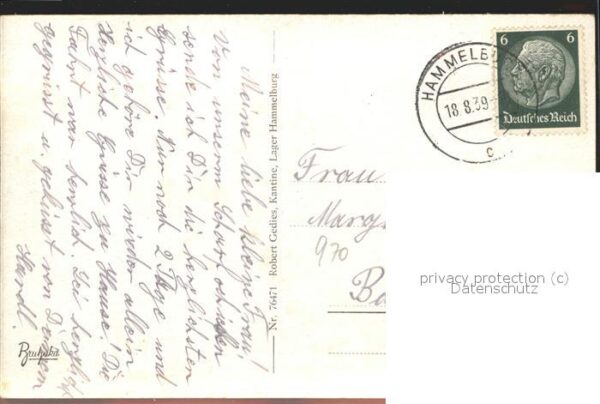 Meine liebe kleine Frau!
Von unserm
sende ich Dir die herzlichsten
Grüsse. Nur noch 2 Tage und
ich gehöre Dir wieder allein
Herzliche Grüsse zu Hause! Die
Fahrt war herrlich. Sei herzlichst
gegrüsst u. geküsst von Deinem
Nr. 76471 Robert Gedies, Kantine, Lager Hammelburg
HAMMELB
18.8.39
c
6 6
Deutsches Reich
Frau
Marg
970
Ba
privacy protection (c)
Datenschutz